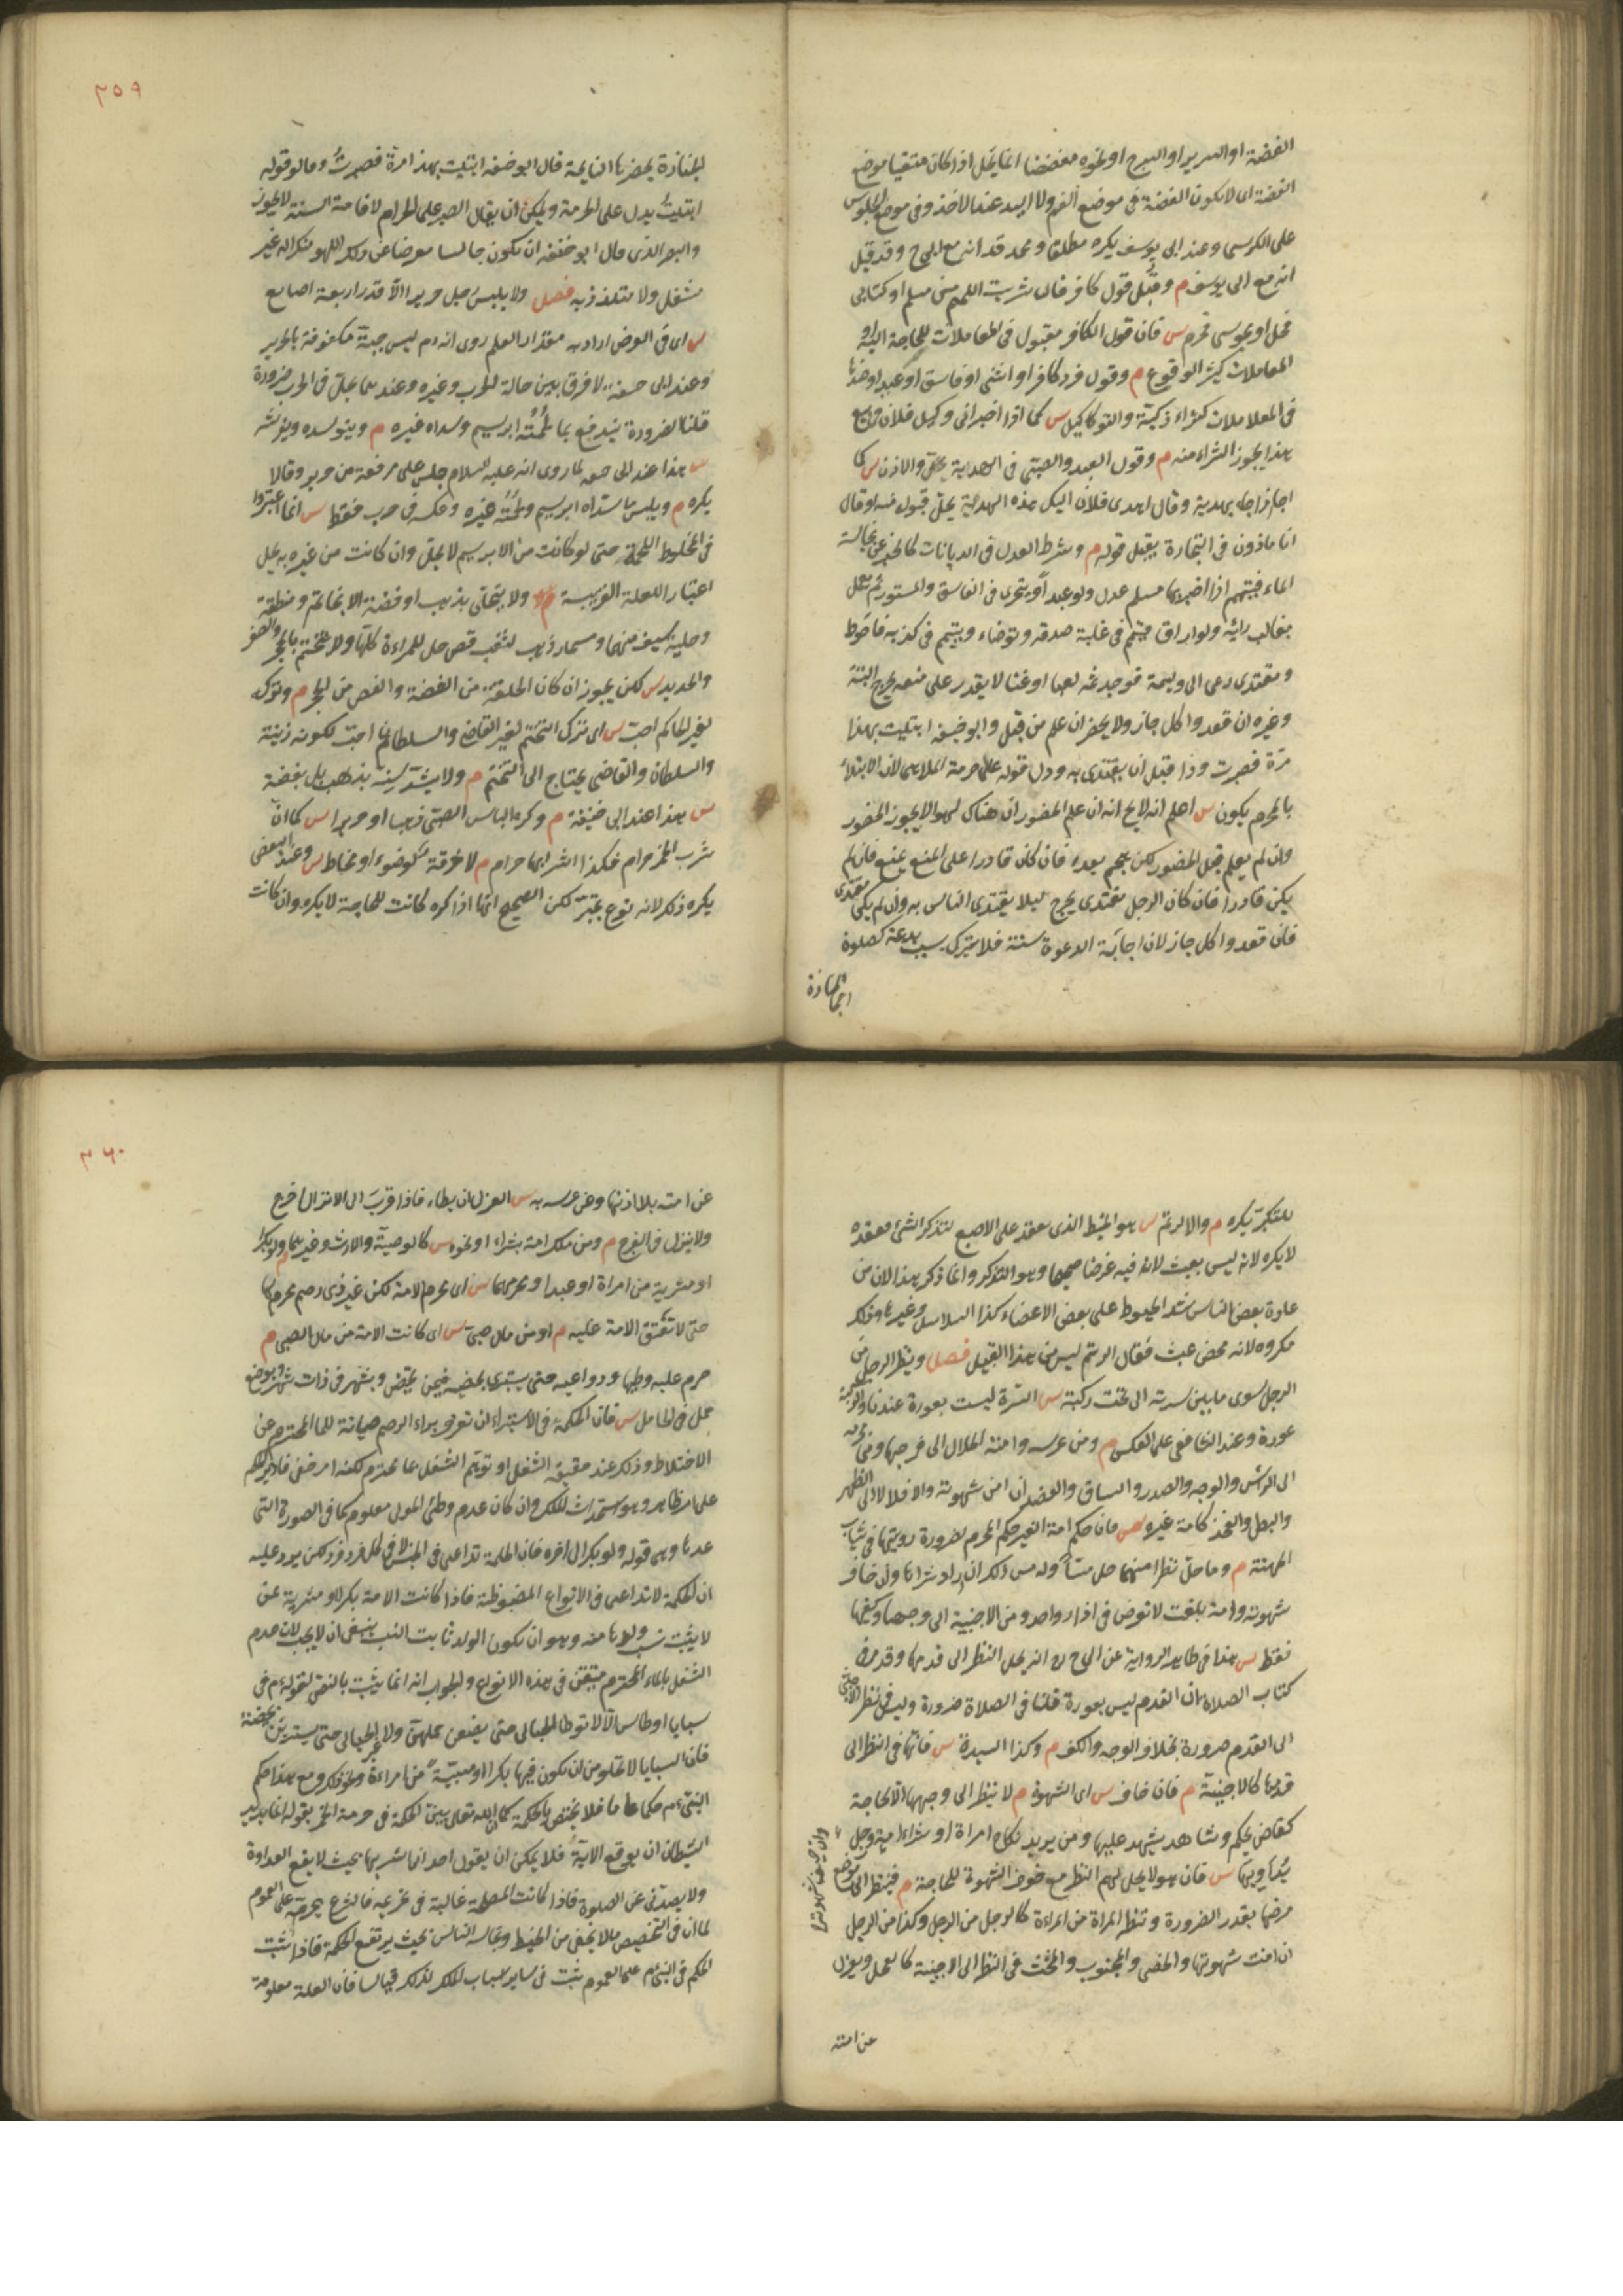 الفضة او السرير او السرج او نحوه مفضضا انما يحل اذا كان متقيا موضع
الفضة اى لا يكون الفضة فى موضع الفم ولا اليد عند الاخذ وفى موضع الجلوس
على الكرسى وعند ابى يوسف يكره مطلقا ومحمد قد انه مع ابى ح وقد قيل
انه مع ابى يوسف م وقبل قول كافر قال شريت اللحم من مسلم او كتابى
فحل او مجوسى فحرم س فان قول الكافر مقبول فى المعاملات للحاجة اليه اذ
المعاملات كثير الوقوع م وقول فرد كافر او انثى او فاسق او عبد او ضدها
فى المعاملات كشراء ذكيت والتوكيل س كما اذا اخبر انى وكيل فلان فى بيع
هذا يجوز الشراء منه م وقول العبد والصبى فى الهداية يحل والاذن س كما
اجاز اجا بهدية وقال اهدى فلان اليك هذه الهدية يحل قبوله منه او قال
انا ماذون فى التجارة يقبل قوله م وشرط العدل فى الديانات كالخبر عن نجاسة
الماء فيتيمم اذا اخبر بها مسلم عدل ولو عبدا ويتحرى فى الفاسق والمستور ثم يعمل
بغالب رايه ولو اراق فتيمم فى غلبة صدقه وتوضاء ويتيمم فى كذبه فاحوط
ومقتدى دعى الى وليمة فوجد ثمه لعبا او غنا لا يقدر على منعه يخرج البتة
وغيره ان قعد واكل جاز ولا يحضر ان علم من قبل وابو حنيفه ابتليت بهذا
مرة فصبرت وذا قبل ان يقتدى به ودل قوله على حرمة الملاهى لان الابتلاء
بالمحرم يكون س اعلم انه لا يخ انه ان علم الحضور ان هناك لهوا لا يجوز الحضور
وان لم يعلم قبل الحضور لكن هجم بعده فان كان قادرا على المنع يمنع فان لم
يكن قادرا فان كان الرجل مقتدى يخرج ليلا يقتدى الناس به وان لم يكن مقتدى
فان قعد واكل جاز لان اجابة الدعوة سنة فلا تترك بسبب بدعة كصلوة
الجنازة
الجنازة يحضرها النايحة قال ابو حنيفه ابتليت بهذا مرة فصبرت وقالوا قوله
ابتليت يدل على الحرمة ويمكن ان يقال الصبر على الحرام لاقامة السنة لا يجوز
والصبر الذى قال ابو حنيفه ان يكون جالسا معرضا عن ذلك اللهو منكرا له غير
مشتغل ولا متلذذ به فصل ولا يلبس رجل حريرا الا قدر اربعة اصابع
س اى فى العرض اراد به مقدار العلم روى انه دم لبس جبة مكفوفة بالحرير
وعند ابى حنيفه لا فرق بين حالة الحرب وغيره وعندهما يحل فى الحرب ضرورة
قلنا الضرورة تندفع بما لحمته ابريسم وسداه غيره م ويتوسده ويفرشه
س هذا عند ابى حنيفه لما روى انه عليه السلام جلس على مرفقة من حرير وقالا
يكره م ويلبس ما سداه ابريسم ولحمته غيره وعكسه فى حرب فقط س انما اعتبروا
فى المخلوط اللحمة حتى لو كانت من الابريسم لا يحل وان كانت من غيره يحل
اعتبار اللعلة القريبة م ولا يتحلى بذهب او فضة الا بخاتم ومنطقة
وحلية سيف منها ومسمار ذهب لثقب فص حل للمراءة كلها ولا يتختم بالحجر والصفر
والحديد س لكن يجوز ان كان الحلقة من الفضة والفص من الحجر م وتركه
لغير الحاكم احب س اى ترك التختم لغير القاضى والسلطان احب لكونه زينة
والسلطان والقاضى يحتاج الى التختم م ولا يشد سنه بذهب بل بفضة
س هذا عند ابى حنيفة م وكره الباس الصبى ذهبا او حريرا س كما ان
شرب الخمر حرام فكذا اشرابها حرام م لا خرقة لوضوء او مخاط س وعند البعض
يكره ذلك لانه نوع تجبر لكن الصحيح انها اذا كره كانت للحاجة لا يكره وان كانت
للتكبر يكره م والا الرتم س هو الخيط الذى يعقد على الاصبع لتذكر الشئ فعقده
لا يكره لانه ليس بعبث لانه فيه غرضا صحيحا وهو التذكر وانما ذكر هذا لان من
عادة بعض الناس شد الخيوط على بعض الاعضاء كذا السلاسل وغيرها وذلك
مكروه لانه محض عبث فقال الرتم ليس من هذا القبيل فصل وينظر الرجل من
الرجل سوى ما بين سرته الى تحت ركبته س السرة ليست بعورة عندنا والركبة
عورة وعند الشافعى على العكس م ومن عرسه وامته الحلال الى فرجها ومن محرمه
الى الراس والوجه والصدر والساق والعضد ان امن شهوته والا فلا لا الى الظهر
والبطن والفخذ كامة غيره س فان حكم امة الغير حكم المحرم لضرورة رويتها فى ثياب
المهنة م وما حل نظرا منهما حل مسا وله مس ذلك ان اراد شراها وان خاف
شهوته وامة بلغت لا تعرض فى ازار واحد ومن الاجنبية الى وجهها وكفيها
فقط س هذا فى ظاهر الرواية عن ابى ح ان انه يحل النظر الى قدمها وقد مر فى
كتاب الصلاة ان القدم ليس بعورة قلنا فى الصلاة ضرورة وليس فى نظر الاجنبى
الى القدم ضرورة بخلاف الوجه والكف م وكذا السيدة س فانها فى النظر الى
قدمها كالاجنبية م فان خاف س اى الشهوة م لا ينظر الى وجهها الا لحاجة
كقاض يحكم وشاهد يشهد عليها ومن يريد نكاح امراة او شراء امة ورجل
يداويها س فان هولا يحل لهم النظر مع خوف الشهوة للحاجة م فينظر الى موضع
مرضها بقدر الضرورة وتنظر المراة من المراءة كالرجل من الرجل وكذا من الرجل
ان امنت شهوتها والخصى والمجبوب والمخنث فى النظر الى الاجنبية كالفحل ويعزل
عن امته
عن امته بلا اذنها وعن عرسه به س العزل ان يطاء فاذا قرب الى الانزال اخرج
ولا ينزل فى الفرج م ومن ملك امة بشراء او نحوه س كالوصية والارث وغيرهما م ولو بكرا
او مشرية من امراة او عبد او محرمها س اى محرم الامة لكن غير ذى رحم محرم لها
حتى لا تعتق الامة عليه م او من مال صبى س اى كانت الامة من مال الصبى م
حرم عليه وطيها ودواعيه حتى يستبرى بحيضه فيمن تحيض وبشهر فى ذات شهر وبوضع
حمل فى الحامل س فان الحكمة فى الاستبراء ان تعرف براء الرحم صيانة للماء المحترم عن
الاختلاط وذلك عند حقيقة الشغل او توهم الشغل بماء محترم لكنه امر خفى فادير الحكم
على امر ظاهر وهو استحداث الملك وان كان عدم وطئ المولى معلوم كما فى الصور التى
عدها وهى قوله ولو بكرا الى اخره فان الحكمة تراعى فى الجنس لا فى كل فرد فرد لكن يرد عليه
ان الحكمة لا تراعى فى الانواع المضبوطة فاذا كانت الامة بكرا او مشرية عن
لا يثبت نسب ولدها منه وهو ان يكون الولد ثابت النسب ينبغى ان لا يجب لان عدم
الشغل بالماء المحترم متيقن فى هذه الانواع والجواب انه انما يثبت بالنص لقوله ع م فى
سبايا اوطاس الا لا توطا الحبالى حتى يضعن حملهن ولا الحبالى حتى يستبرين بحيضة
فان السبايا لا تخلو من ان يكون فيها بكرا او مسبية من امراءة ونحو ذلك ومع هذا حكم
النبى ع م حكما عاما فلا يختص بالحكمة كما ان الله تعالى بين الحكمة فى حرمة الخمر بقوله انما يريد
الشيطان ان يوقع الاية فلا يمكن ان يقول احد انها شربها بحيث لا يقع العداوة
ولا يصدنى عن الصلوة فاذا كانت المصلحة غالبة فى تحريمه فالشرع يحرمه على العموم
لما ان فى التخصيص مالا يخفى من الخبط وتجاسر الناس بحيث يرتفع الحكمة فاذا ثبت
الحكم فى السبى على العموم ثبت فى ساير اسباب الملك لذلك قياسا فان العلة معلومة